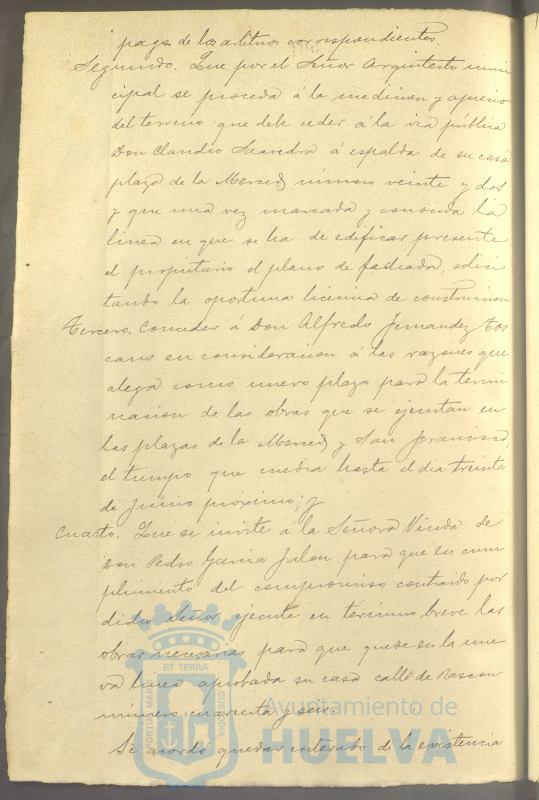 pago de los arbitrios correspondientes.
Segundo. Que por el Señor Arquitecto muni
cipal se proceda á la medicion y aprecio
del terreno que debe ceder á la via pública
Don Claudio Saavedra á espalda de su casa
plaza de la Merced número veinte y dos
y que una vez marcada y conocida la
linea en que se ha de edificar presente
el propietario el plano de fachada, solici
tando la oportuna licencia de construccion
Tercero. Conceder á Don Alfredo Fernandez Tos
cano en consideracion á las razones que
alega como nuevo plazo para la termi
nacion de las obras que se ejecutan en
las plazas de la Merced y San Francisco,
el tiempo que media hasta el dia treinta
de Junio próximo; y
Cuarto. Que se invite á la Señora Viuda de
Don Pedro Garcia Jalon para que en cum
plimiento del compromiso contraido por
dicho Señor ejecute en término breve las
obras necesarias para que quede en la nue
va linea aprobada su casa calle de Rascon
número cuarenta y seis.
Se acordó quedar enterado de la existencia
PORTUS MARIS ET TERRÆ CUSTODIA
Ayuntamiento de
HUELVA